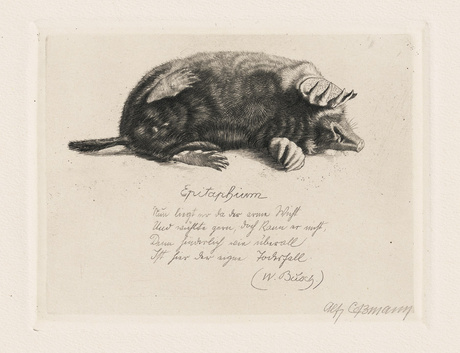 Epitaphium
Nun liegt er da der arme Wicht
Und wühlte gern, doch kann er nicht,
Denn hinderlich wie überall
Ist hier der eigne Todesfall
(W. Busch)
Alf. Coßmann